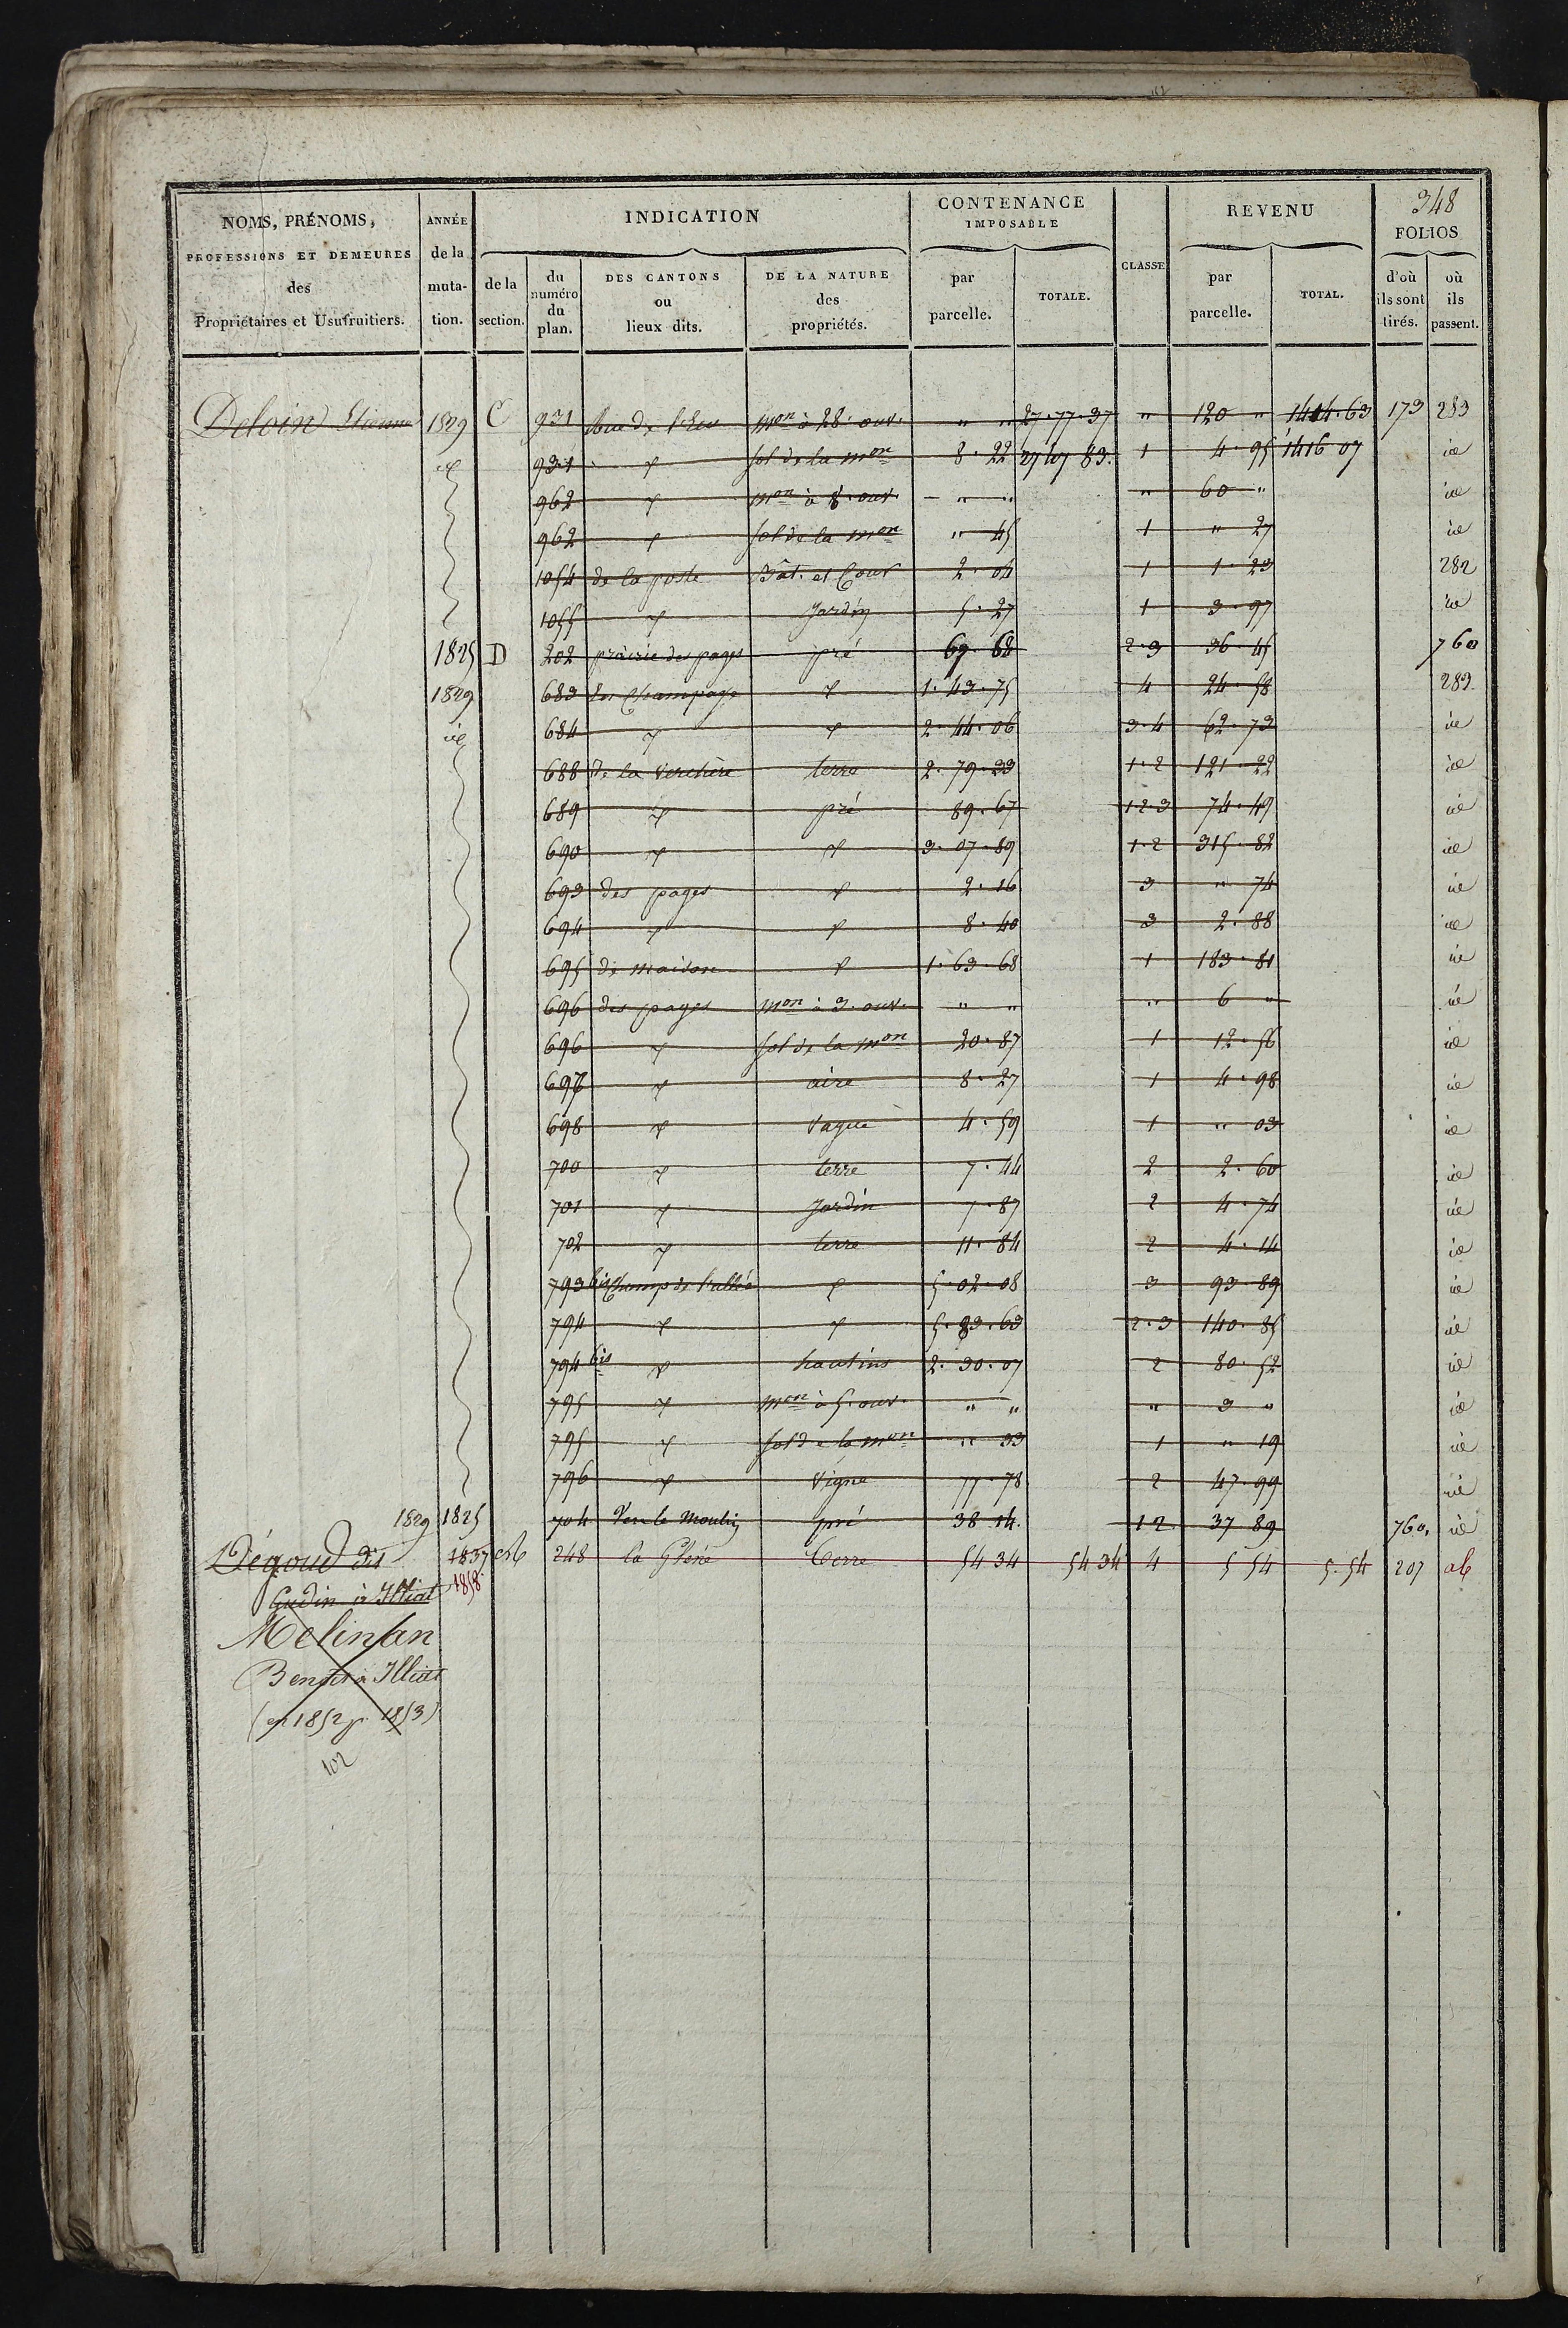 348
NOMS, PRÉNOMS, PROFESSIONS ET DEMEURES des Propriétaires et Usufruitiers. | ANNÉE de la mutation. | INDICATION | CONTENANCE IMPOSABLE | CLASSE | REVENU | FOLIOS
de la section. | du numéro du plan. | DES CANTONS ou lieux dits. | DE LA NATURE des propriétés. | par parcelle. | TOTALE. | par parcelle. | TOTAL. | d'où ils sont tirés. | où ils passent.
Deloin Etienne 1829 C 931 mon à 28. ouv. " " 27.77.37 " 120 " 1414.63 173 283
id 931 sol de la mon 8.22 83. 1 4.95 1416 07 id
962 mon à 8. ouv. " " " 60 " id
962 sol de la mon " 45 1 " 27 id
1054 de la poste Bât. et Cour 2.04 1 1.23 282
1055 Jardin 5.27 1 3.97 id
1825 D 202 prairie des pages pré 69.68 2.3 36.45 760
1829 683 1.43.75 4 24.58 283
id 684 2.44.06 3.4 62.73 id
688 de la Verchère terre 2.79.33 1.2 121.22 id
689 pré 89.67 1.2.3 74.49 id
690 3.07.89 1.2 315.82 id
693 des pages 2.16 3 " 74 id
694 8.40 3 2.88 id
695 de maison 1.63.68 1 183.81 id
696 des pages mon à 3. ouv. " " " 6 " id
696 sol de la mon 20.87 1 12.56 id
697 aire 8.27 1 4.98 id
698 Vague 4.59 1 " 03 id
700 terre 7.44 2 2.60 id
701 Jardin 7.87 2 4.74 id
702 terre 11.84 2 4.14 id
793 bis Champ de 5.02.08 3 93.89 id
794 5.83.63 2.3 140.85 id
794 bis hautins 2.30.07 2 80.52 id
795 mon à 5. ouv. " " " 3 " id
795 sol de la mon " 33 1 " 19 id
796 Vigne 77.78 2 47.99 id
1829 1825 704 Vers le Moulin pré 38 14. 1 2 37 89 760. id
Dégoud dit 1837 Ab 248 la terre 54 34 54 34 4 5 54 5.54 207 ab
Gudin à Illiat 1858
Melinjan
Benoit à Illiat
(en 1852 p. 1853)
102